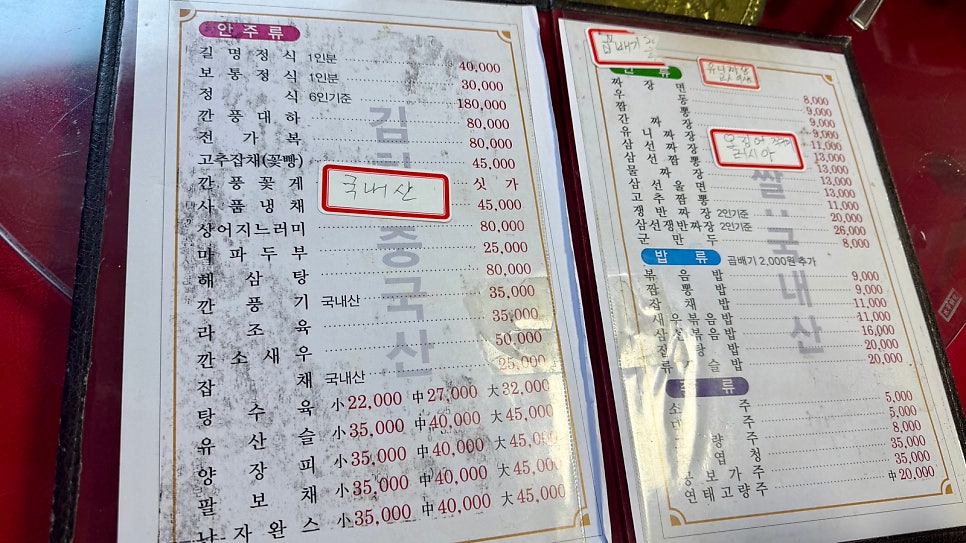 안주류
길명정식 1인분 40,000
보통정식 1인분 30,000
정식 6인기준 180,000
깐풍대하 80,000
전가복 80,000
고추잡채(꽃빵) 45,000
깐풍꽃게 싯가
국내산
사품냉채 45,000
상어지느러미 80,000
마파두부 25,000
해삼탕 80,000
깐풍기 국내산 35,000
라조육 35,000
깐소새우 50,000
잡채 국내산 25,000
탕수육 小22,000 中27,000 大32,000
유산슬 小35,000 中40,000 大45,000
양장피 小35,000 中40,000 大45,000
팔보채 小35,000 中40,000 大45,000
난자완스 小35,000 中40,000 大45,000
중국산
곱배기
류
짜장면 8,000
우동 9,000
짬뽕 9,000
간짜장 9,000
유니짜장 11,000
삼선짜장 13,000
삼선짬뽕 13,000
오징어
러시아
삼선울면 13,000
고추짬뽕 11,000
쟁반짜장 2인기준 20,000
삼선쟁반짜장 2인기준 26,000
군만두 8,000
쌀:국내산
밥류 곱배기 2,000원 추가
볶음밥 9,000
짬뽕밥 9,000
잡채밥 11,000
새우볶음밥 11,000
삼선볶음밥 16,000
잡탕밥 20,000
류산슬밥 20,000
주류
소주 5,000
주 5,000
량주 8,000
엽청 35,000
공보가주 35,000
연태고량주 中20,000